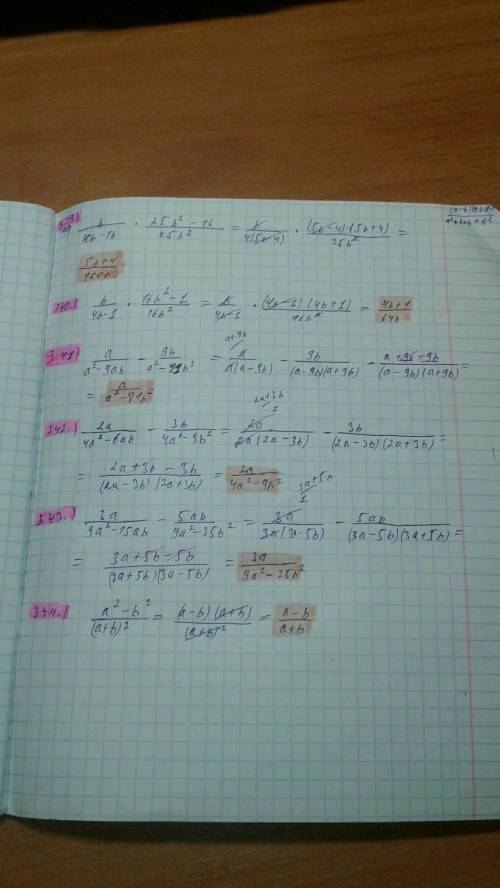 b/(20b-16) · (25b²-16)/25b² = b/4(5b-4) · (5b-4)(5b+4)/25b² =
340.) b/(4b-1) · (16b²-1)/16b² = b/(4b-1) · (4b-1)(4b+1)/16b² = (4b+1)/64b
a+9b
341) a/(a²-9ab) - 9b/(a²-81b²) = a/a(a-9b) - 9b/(a-9b)(a+9b) - (a+9b-9b)/(a-9b)(a+9b) =
= a/(a²-81b²)
2a+3b
342.) 2a/(4a²-6ab) - 3b/(4a²-9b²) = 2a/2a(2a-3b) - 3b/(2a-3b)(2a+3b) =
= (2a+3b-3b)/(2a-3b)(2a+3b) = 2a/(4a²-9b²)
3a+5b
343.) 3a/(9a²-15ab) - 5ab/(9a²-25b²) = 3a/3a(3a-5b) - 5ab/(3a-5b)(3a+5b) =
= (3a+5b-5b)/(3a+5b)(3a-5b) = 3a/(9a²-25b²)
344.) (a²-b²)/(a+b)² = (a-b)(a+b)/(a+b)² = (a-b)/(a+b)